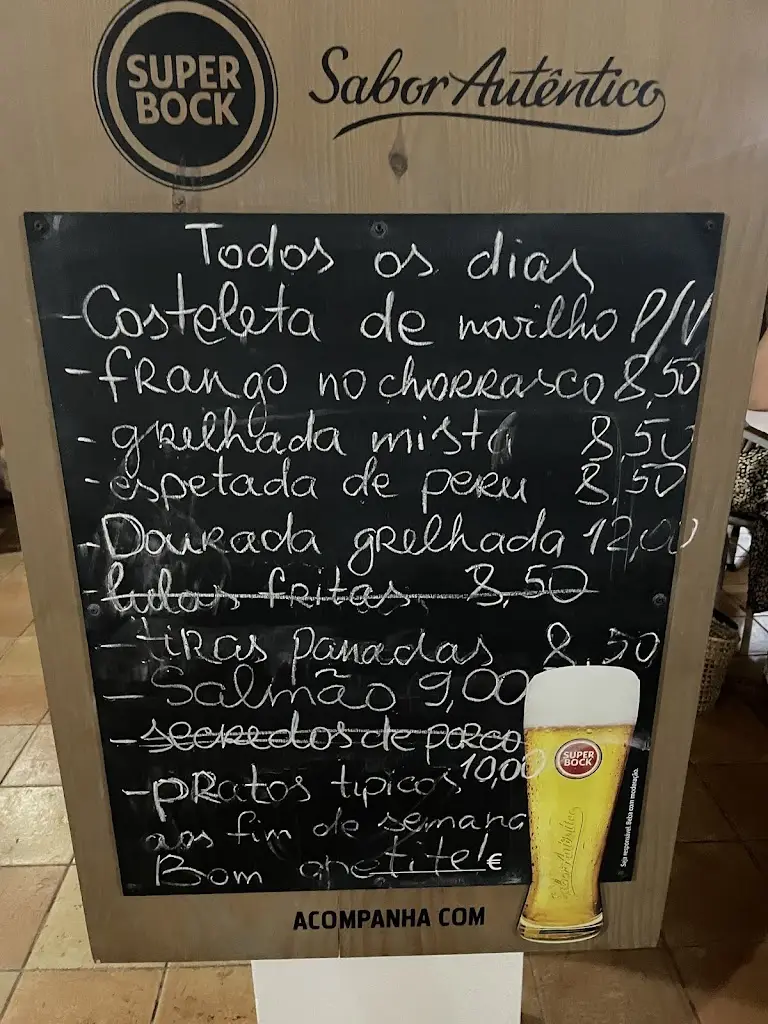 SUPER
BOCK
Sabor Autêntico
Todos os dias
- Costeleta de novilho P/V
- frango no chorrasco 8,50
- grelhada mista 8,50
- espetada de peru 8,50
- Dourada grelhada 12,00
- lulas fritas. 8,50
- tiras panadas 8,50
- Salmão 9,00
- secredos de porco
10,00
- pratos tipicos
aos fim de semana
Bom apetite! €
SUPER
BOCK
Sabor Autêntico
Seja responsável. Beba com moderação.
ACOMPANHA COM